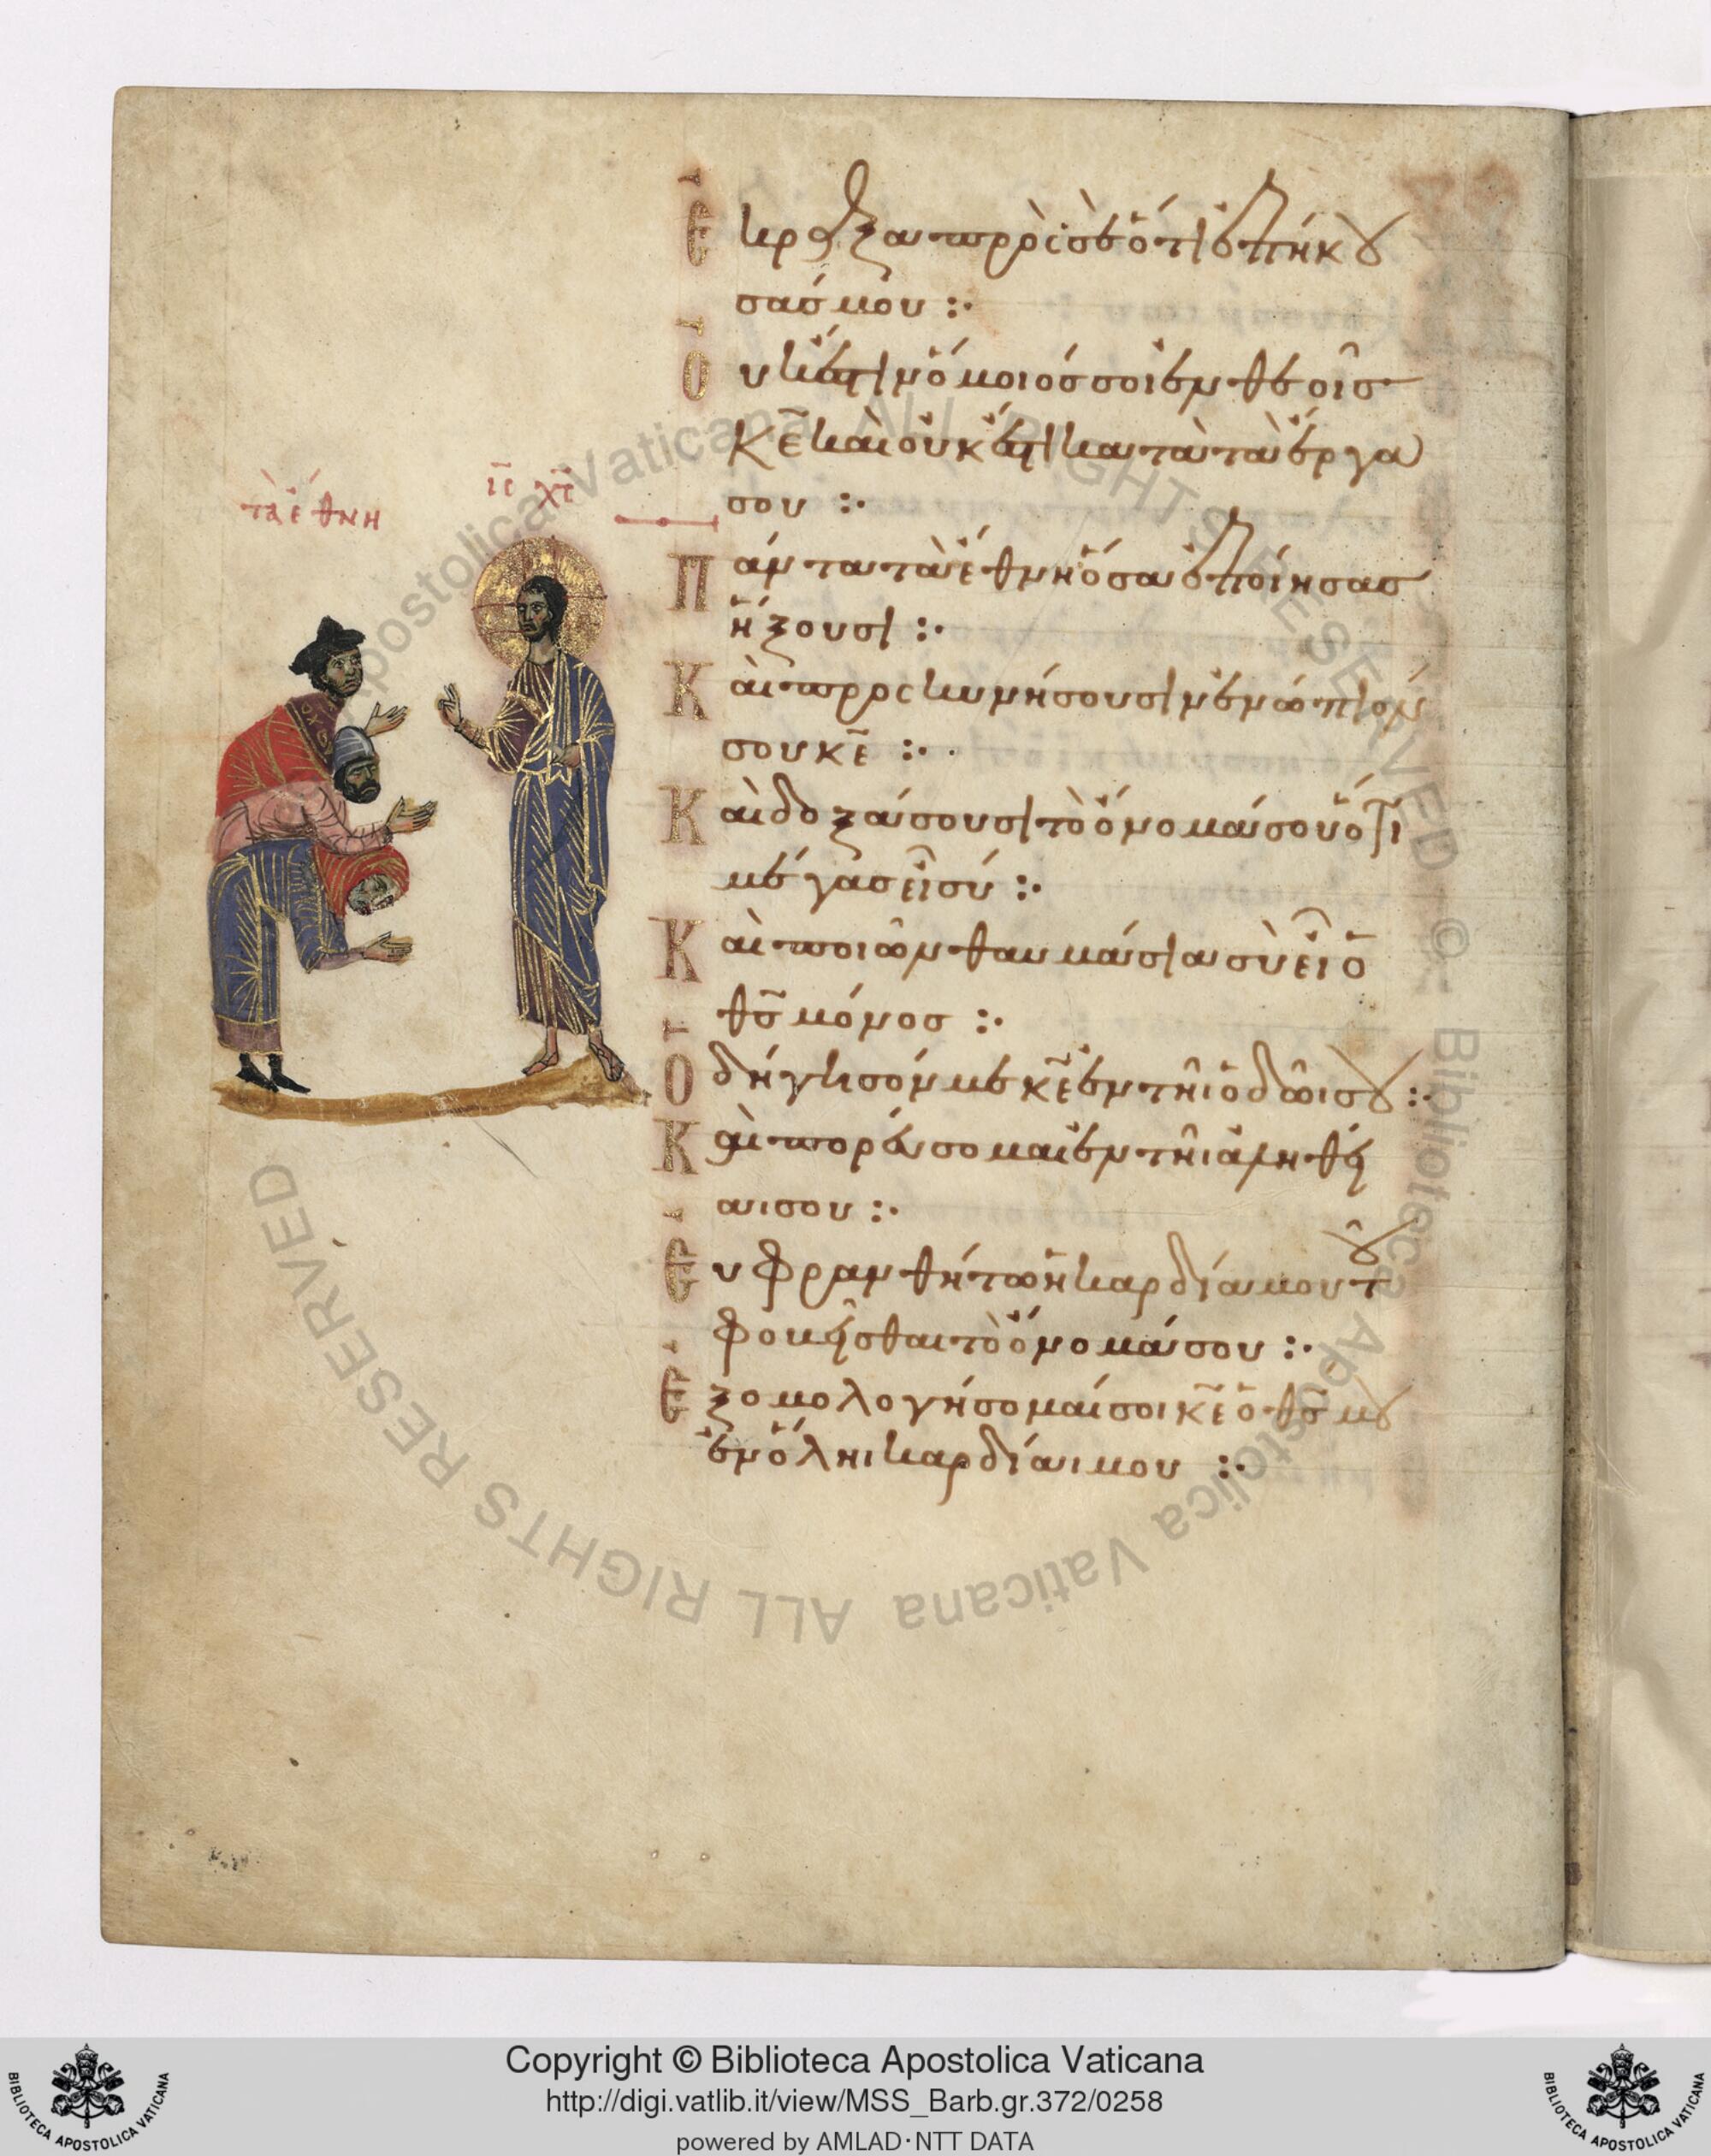 τὰ ἔθνη
ις χς
Ἐκέκραξα πρὸς σὲ ὅτι ἐπήκου
σάς μου :·
Οὐκ ἔστιν ὅμοιός σοι ἐν θεοῖς
κε καὶ οὐκ ἔστι κατὰ τὰ ἔργα
σου :·
Πάντα τὰ ἔθνη ὅσα ἐποίησας
ἥξουσι :·
Καὶ προσκυνήσουσιν ἐνώπιον
σου κε :·
Καὶ δοξάσουσι τὸ ὄνομά σου ὅτι
μέγας εἶ σύ :·
Καὶ ποιῶν θαυμάσια σὺ εἶ ὁ
θς μόνος :·
Ὁδήγησόν με κε ἐν τῆι ὁδῶι σου :·
Καὶ πορεύσομαι ἐν τῆι ἀληθεί
αι σου :·
Εὐφρανθήτω ἡ καρδία μου τοῦ
φοβεῖσθαι τὸ ὄνομά σου :·
Ἐξομολογήσομαί σοι κε ὁ θς μου
ἐν ὅληι καρδίαι μου :·
Copyright © Biblioteca Apostolica Vaticana
http://digi.vatlib.it/view/MSS_Barb.gr.372/0258
powered by AMLAD·NTT DATA
BIBLIOTECA APOSTOLICA VATICANA
BIBLIOTECA APOSTOLICA VATICANA
Biblioteca Apostolica Vaticana ALL RIGHTS RESERVED ©